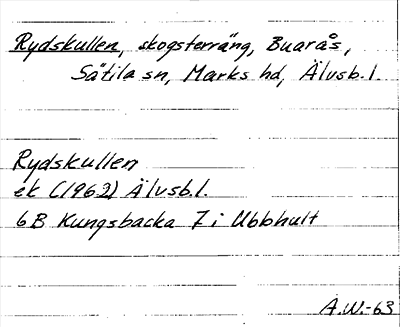 Rydskullen, skogsterräng, Buarås,
Sätila sn, Marks hd, Älvsb.l.
Rydskullen
ek (1962) Älvsb.l.
6B Kungsbacka 7i Ubbhult
A.W.-63